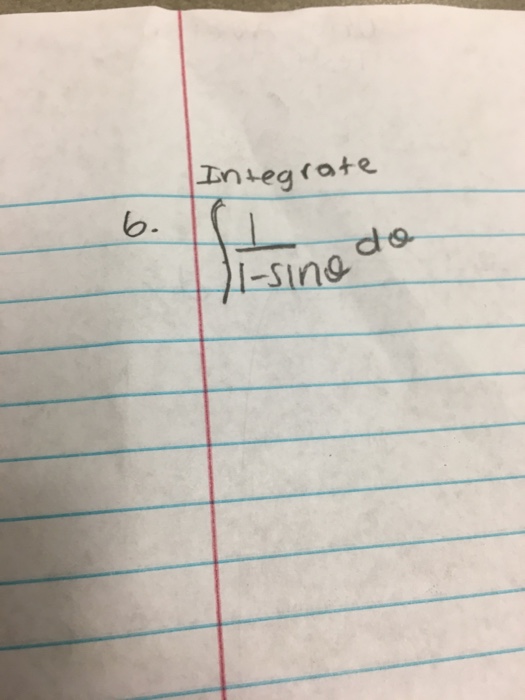 Integrate
6. ∫ 1/(1-sinθ) dθ